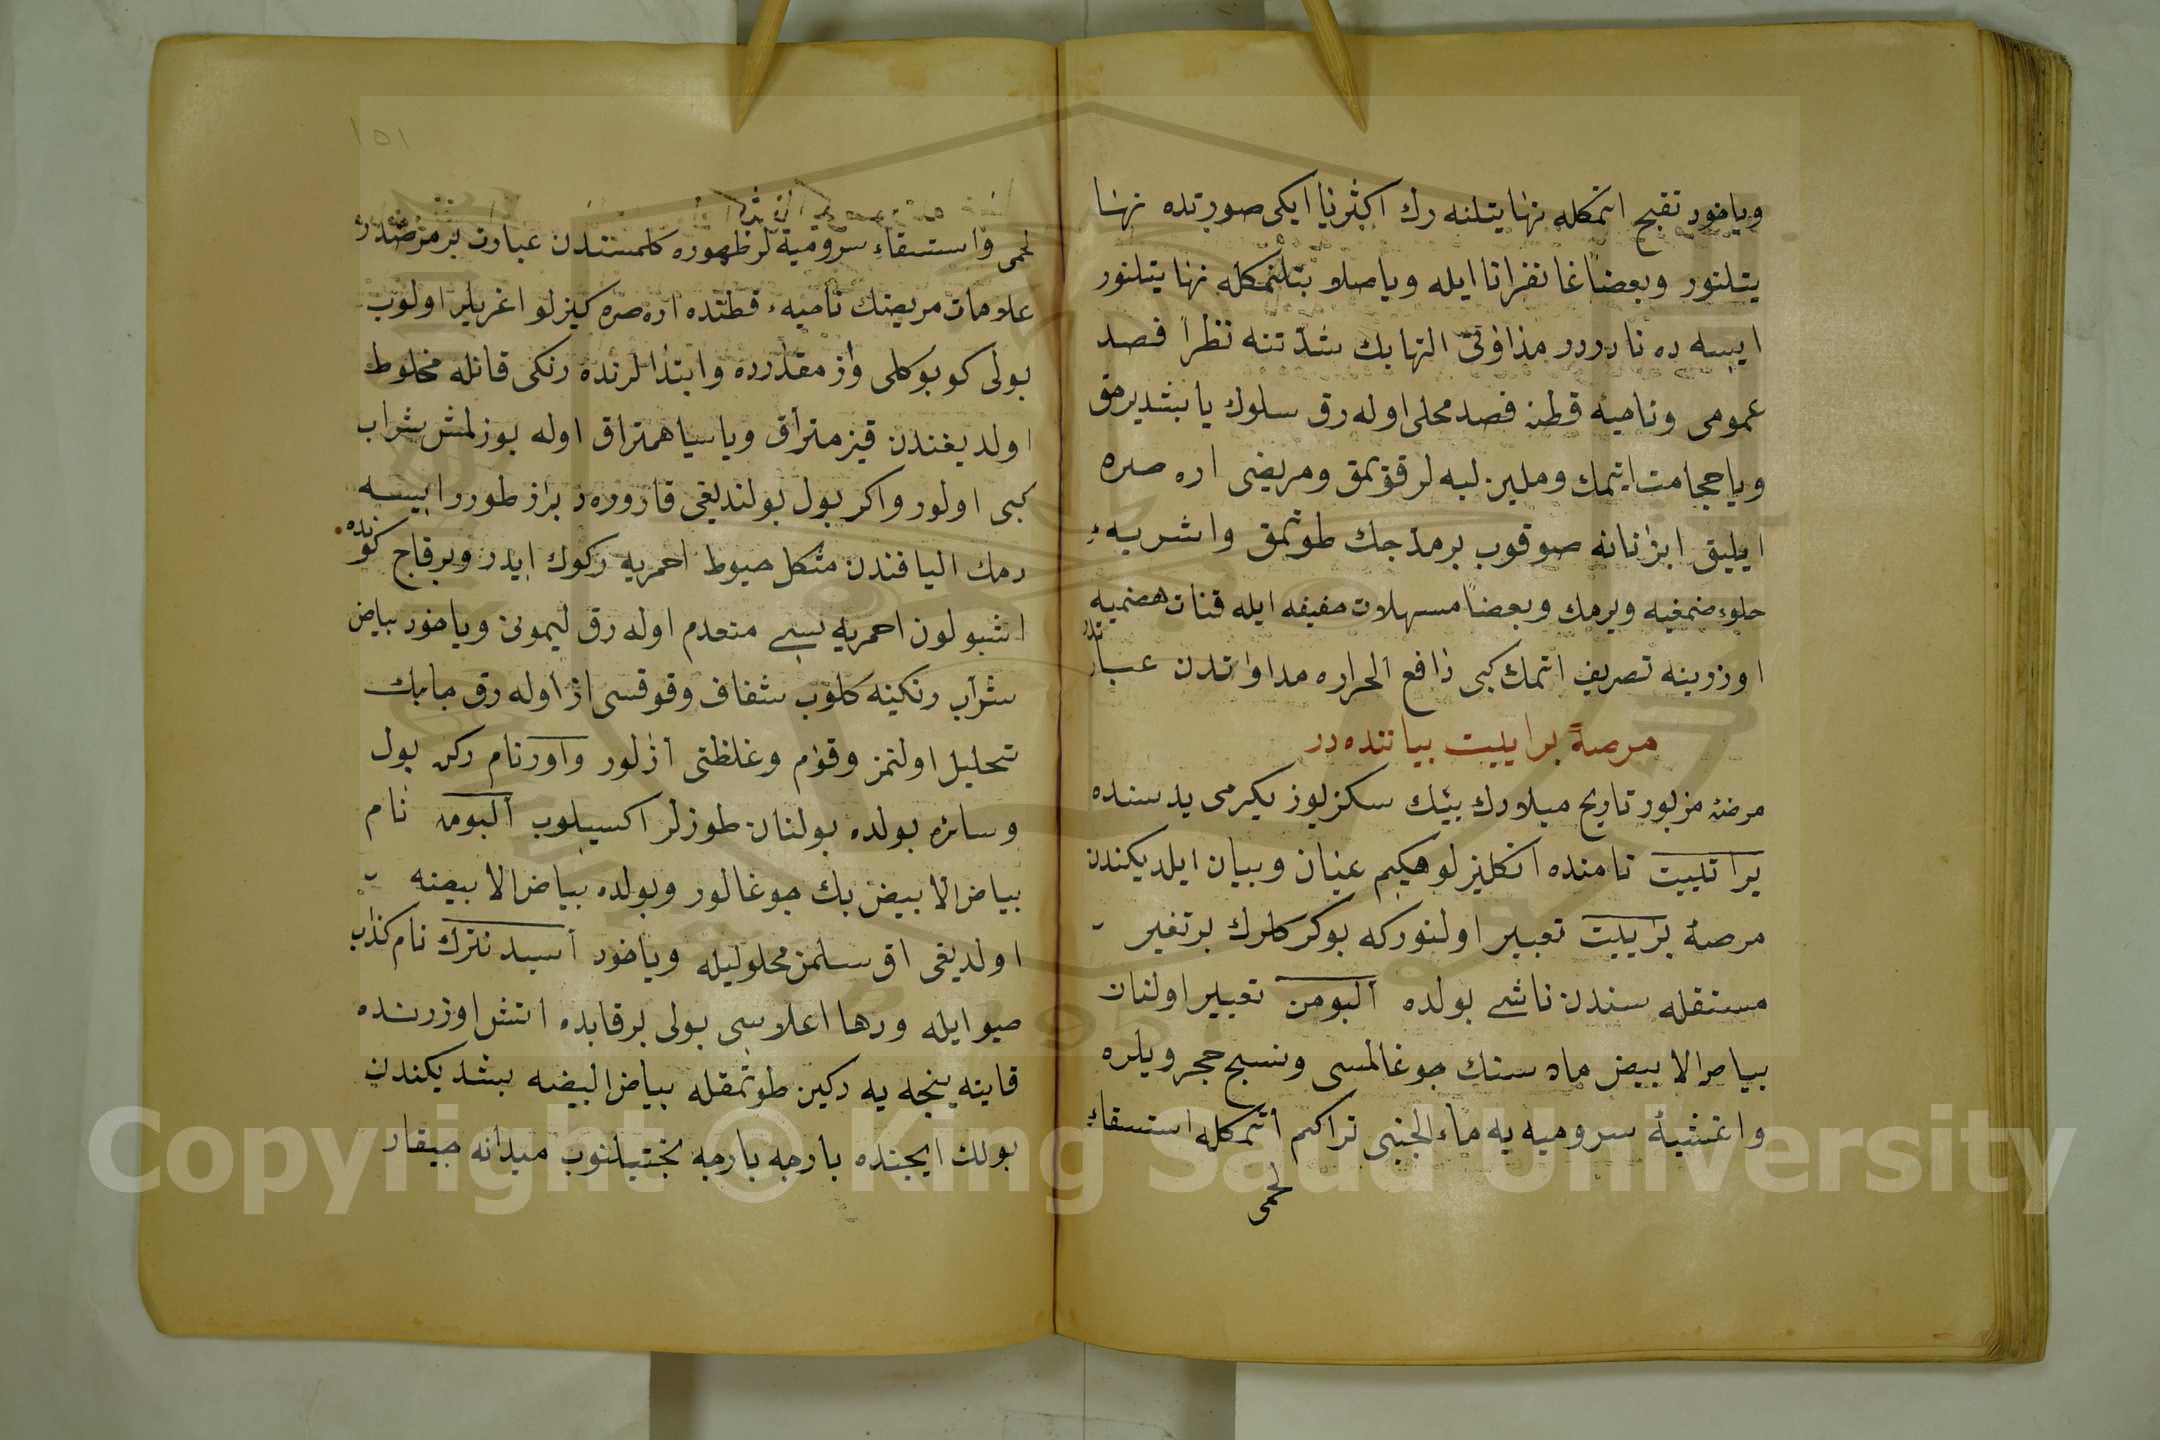 وياخود تقيح اتمكله نهايتلنه رك اكثريا ايكى صورتده نها
يتلنور وبعضًا غانغرانا ايله وياصلا بتلنمكله نهايتلنور
ايسه ده نادردر مداواتى التهابك شدتنه نظرًا فصد
عمومى وناحيه قطن فصد محلى اوله رق سلوك يابشديرمق
وياحجامت ايتمك وملين لبه لر قويمق ومريضى اره صره
ايليق ابزانانه صوقوب برمدجك طوتمق واشربهء
حلوء ضمغيه ويرمك وبعضًا مسهلات خفيفه ايله قنات هضميه
اوزرينه تصريف اتمك كبى دافع الحراره مداواتدن عبارتدر
مرضهٔ برايت بياننده در
مرضهٔ مزبور تاريخ ميلادك بيك سكزيوز يكرمى يدسنده
براتيت نامنده انكليزلو حكيم عيان وبيان ايلديكندن
مرضهٔ برايت تعبير اولنوركه بوكركلرك برتغير
مستقله سندن ناشى بولده آلبومن تعبير اولنان
بياض الابيض ماده سنك جوغالمسى ونسج حجرويلره
واغشيهٔ سروميه يه ماء الجنبى تراكم اتمكله استسقاء
لحمى
١٥١
لحمى واستسقاء سروميه لر ظهوره كلمسندن عبارت بر مرضدر
علامات مريضك ناحيهء قطنده اره صره كيزلو اغريلر اولوب
بولى كوبوكلى واز مقدارده وابتدالرنده رنكى قانله مخلوط
اولديغندن قيزمتراق وياسياهمتراق اوله بوزلمش شراب
كبى اولور واكر بول بولنديغى قاروره ده براز طورر ايسه
دمك اليافندن متشكل خيوط احمريه ركوك ايدر وبرقاج كونده
اشبو لون احمريه نسى منعدم اوله رق ليمونى وياخود بياض
شراب رنكينه كلوب شفاف وقوقسى از اوله رق جابك
تحليل اولنمز وقوام وغلظتى آزلور واورنام ركن بول
وسائره بولده بولنان طوزلر اكسيلوب آلبومن نام
بياض الابيض بك جوغالور وبولده بياض الابيضه
اولديغى اق سلمن محلوليله وياخود آسيد نترك نام كذاب
صيو ايله ودها اعلاسى بولى برقابده اتش اوزرنده
قاينه ينجه يه دكين طوتمقله بياض البيضه ببشديكندن
بولك ايجنده بارجه بارجه بختيلنوب ميدانه جيقار
Copyright © King Saud University